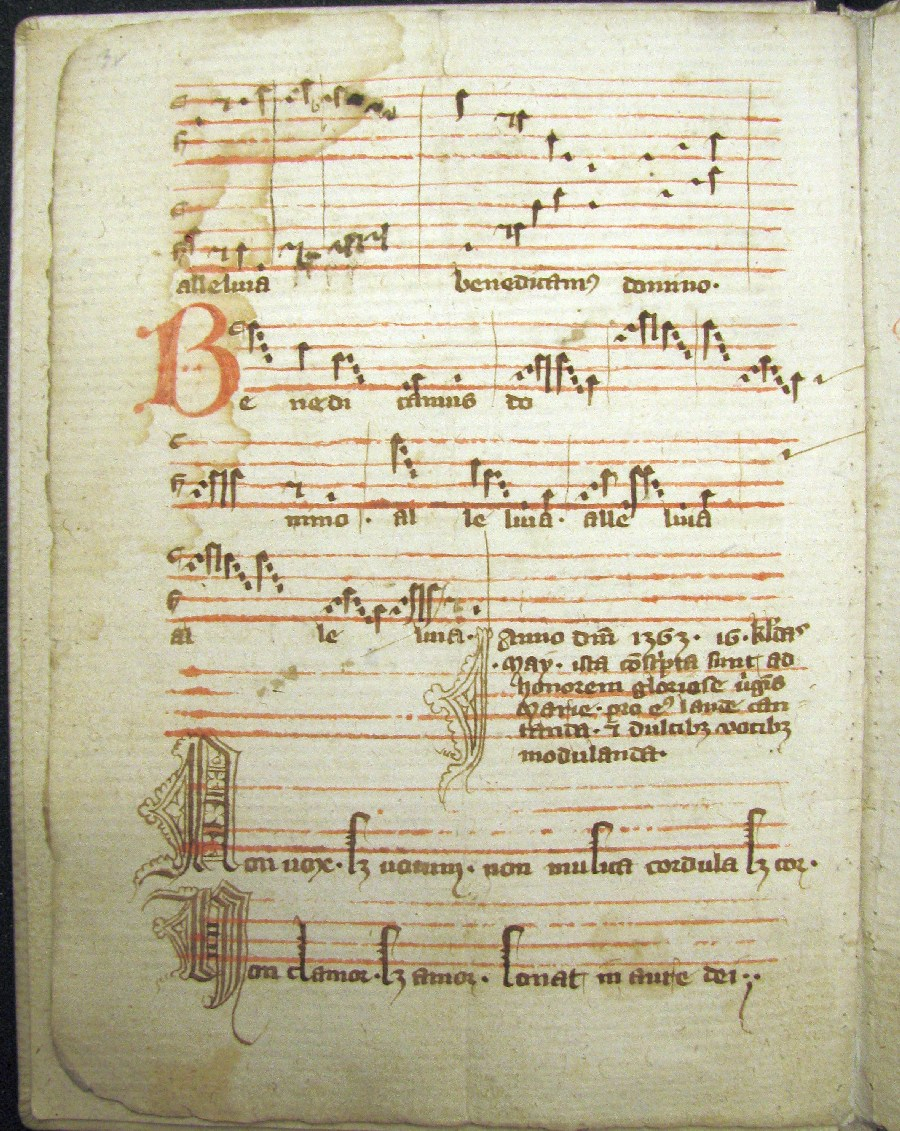 alleluia benedicamꝰ domino·
Be nedi camus do
mino · al le luia· alle luia
al le luia·
Anno dñi 1363· 16· kl'das
·May· ista cōsc̓pta sunt ad
honorem gloriose ỽgīs
Marie· pro eꝰ laude can
tanda· ⁊ dulcibꝫ vocibꝫ
modulanda·
Non uox· sꝫ uotum· non musica cordula sꝫ cor·
Non clamor· sꝫ amor· sonat in aure dei